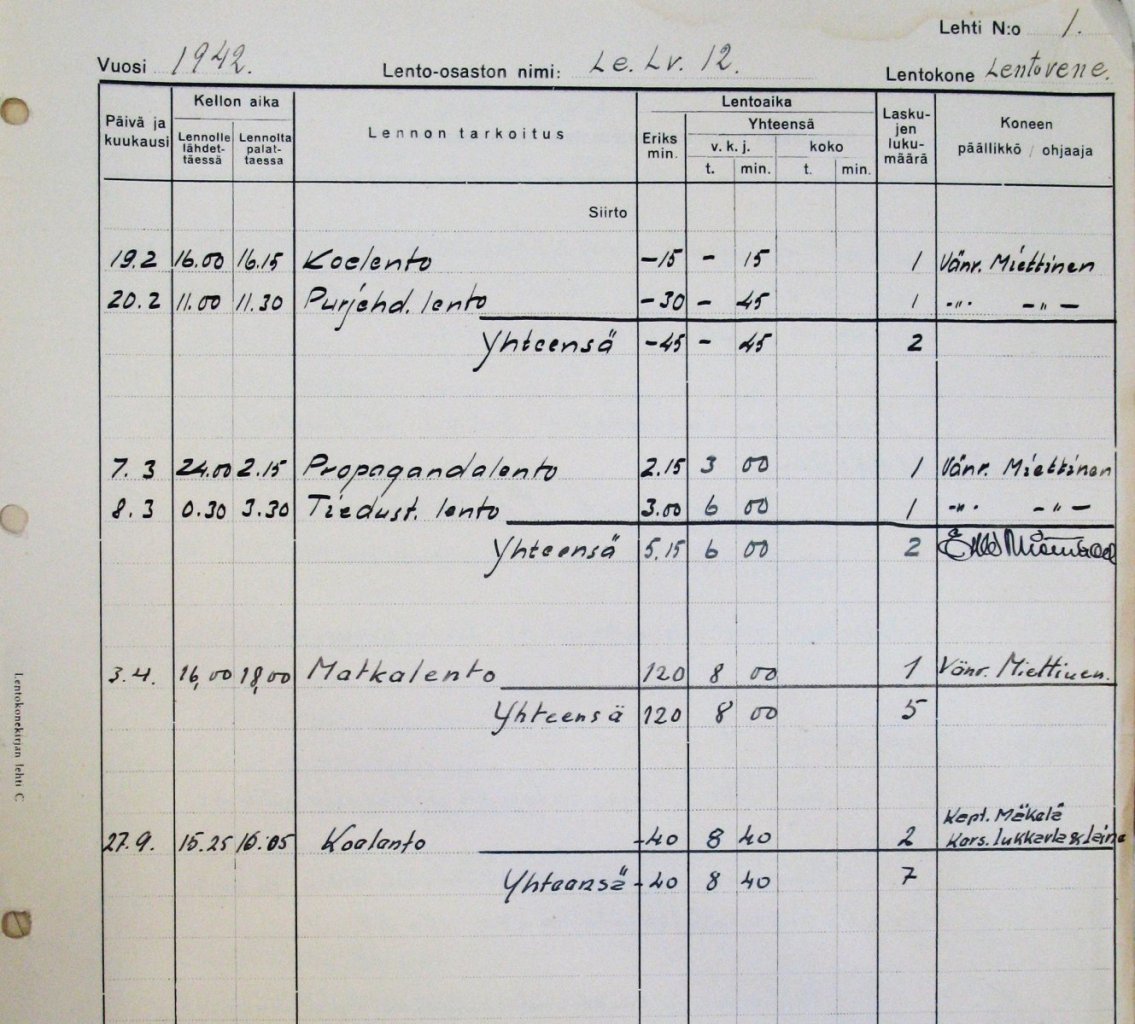 Lehti N:o 1.
Vuosi 1942. Lento-osaston nimi: Le. Lv. 12. Lentokone Lentovene.
Päivä ja kuukausi Kellon aika Lennolle lähdettäessä Lennolta palattaessa Lennon tarkoitus Lentoaika Eriks min. Yhteensä v. k. j. t. min. koko t. min. Laskujen lukumäärä Koneen päällikkö / ohjaaja
Siirto
19.2 16.00 16.15 Koelento -15 - 15 1 Vänr. Miettinen
20.2 11.00 11.30 Purjehd. lento -30 - 45 1 -"- -"-
Yhteensä -45 - 45 2
7.3 24.00 2.15 Propagandalento 2.15 3 00 1 Vänr. Miettinen
8.3 0.30 3.30 Tiedust. lento 3.00 6 00 1 -"- -"-
Yhteensä 5.15 6 00 2
3.4. 16,00 18,00 Matkalento 120 8 00 1 Vänr. Miettinen.
Yhteensä 120 8 00 5
Kapt. Mäkelä
27.9. 15.25 16.05 Koelento -40 8 40 2 Kers. Lukkarla & Laine
Yhteensä -40 8 40 7
Lentokonekirjan lehti C